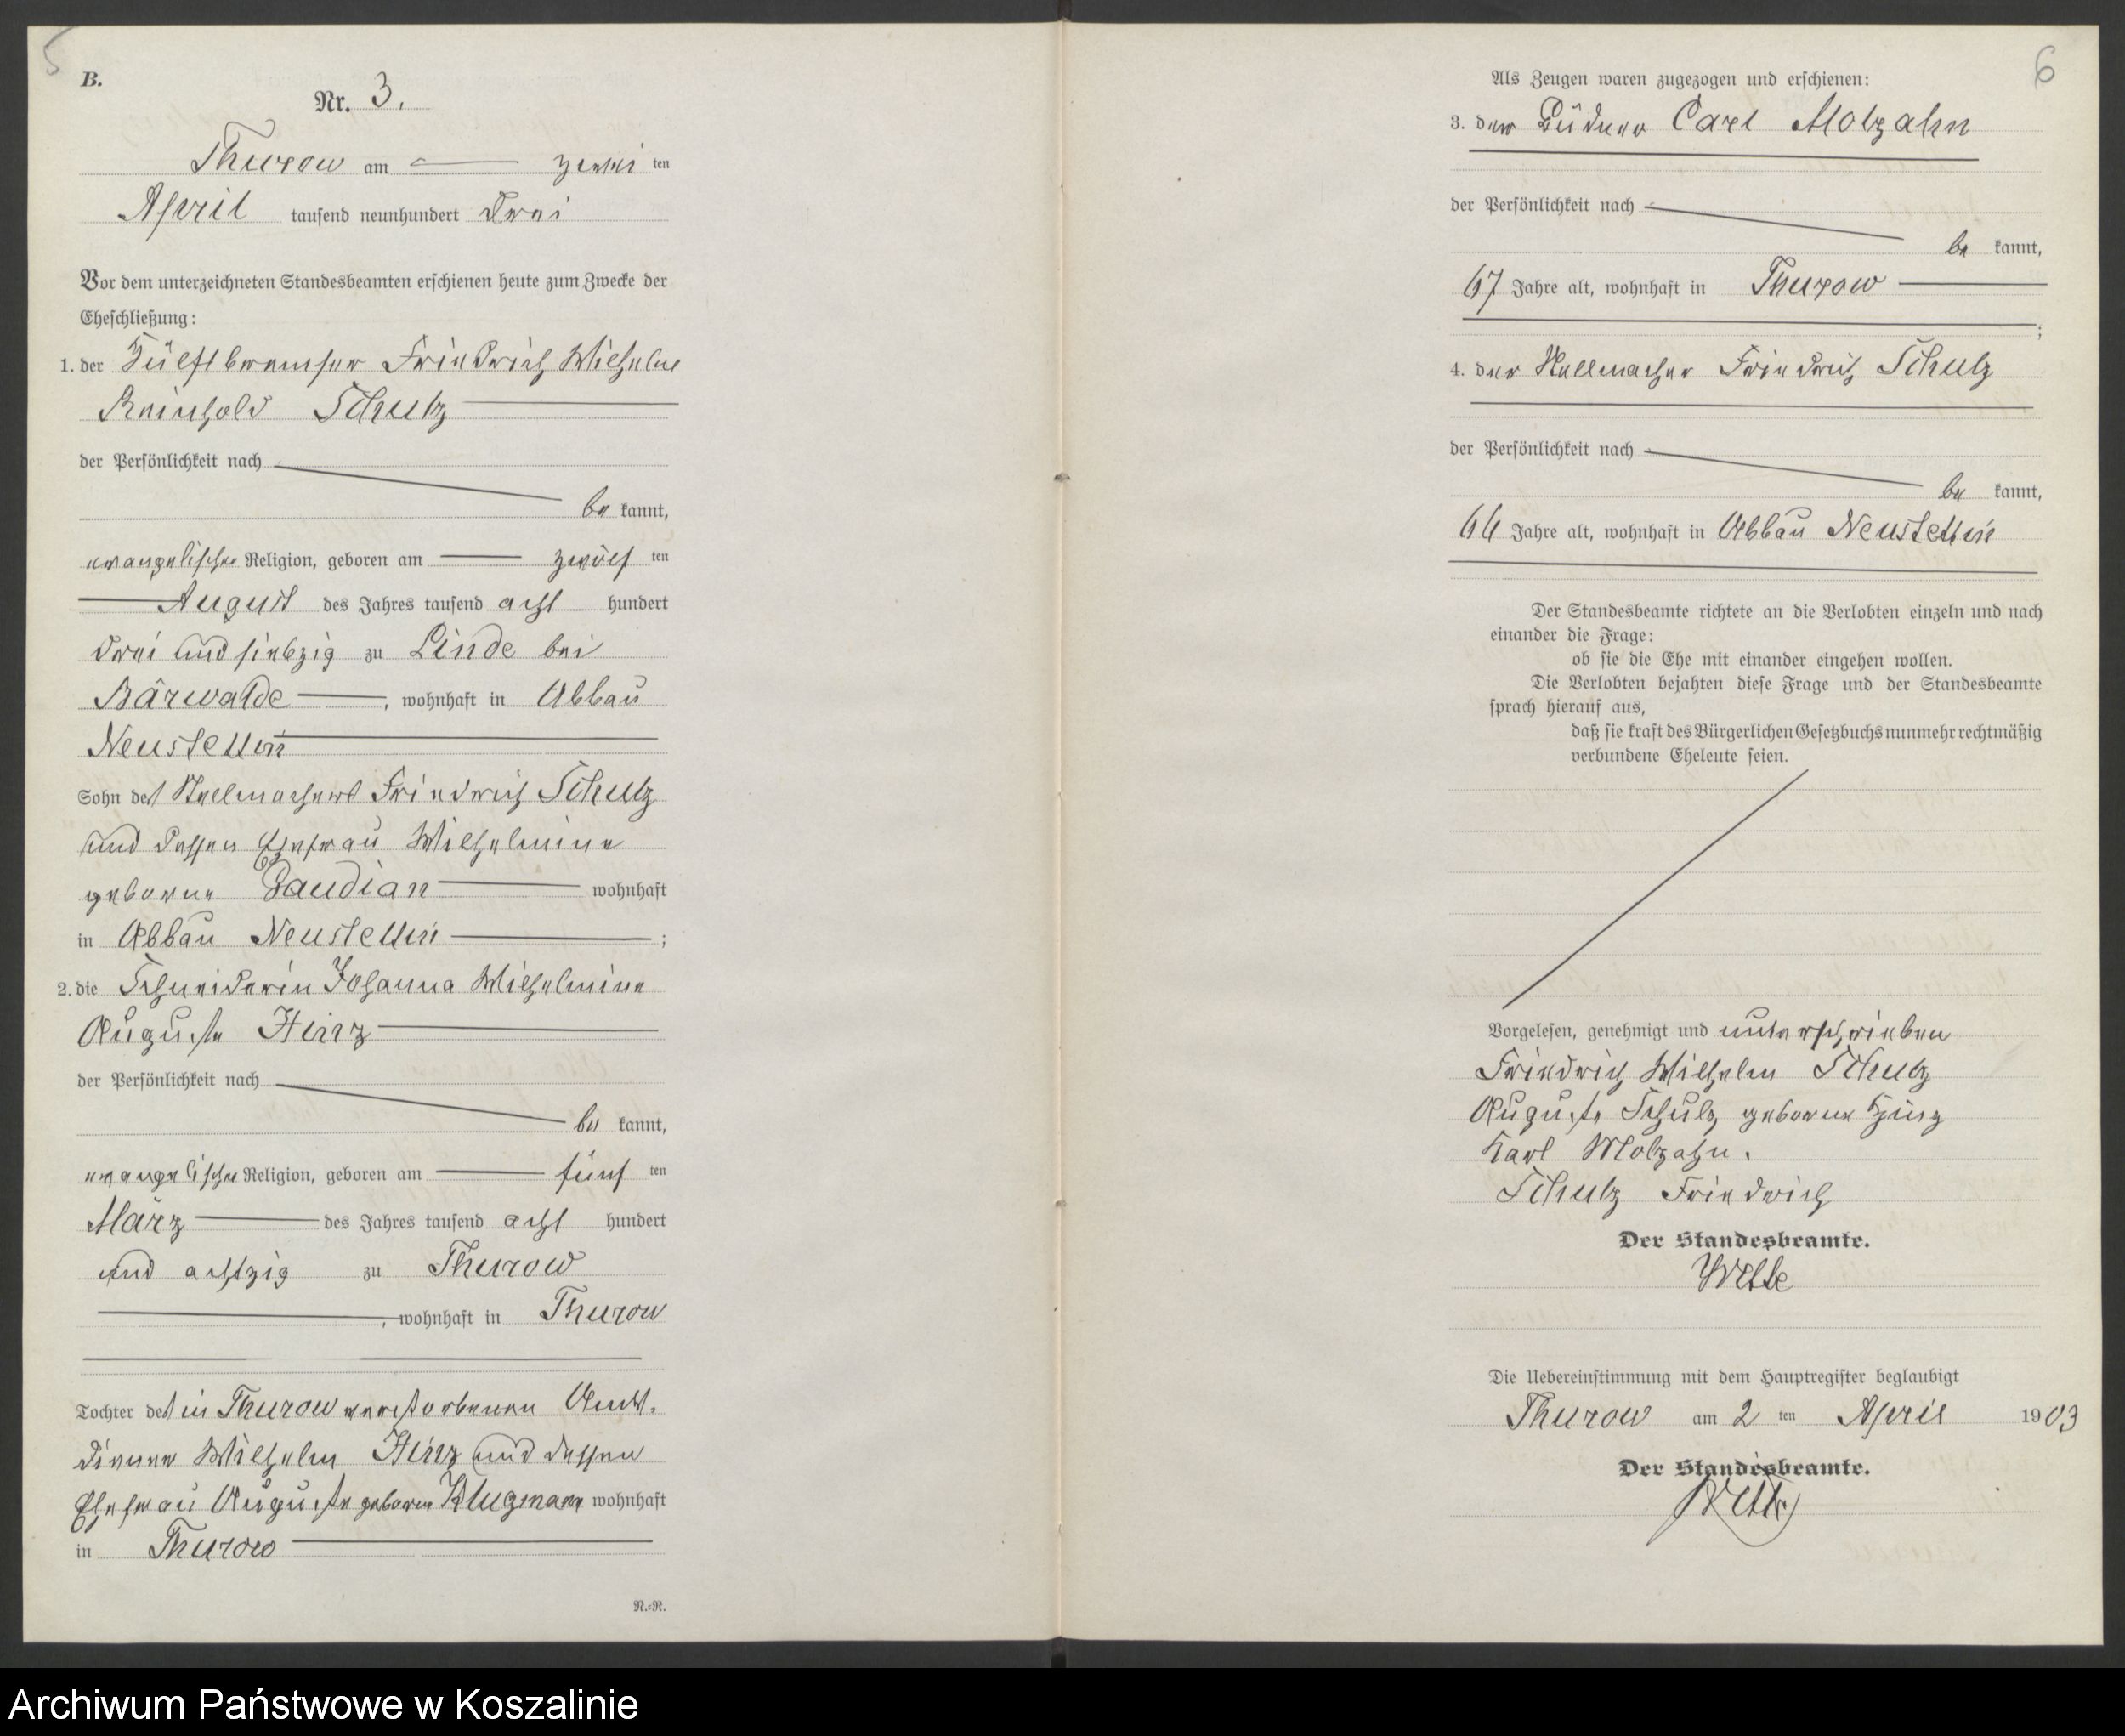 5
B.
Nr. 3.
Thurow am zwei ten
April tausend neunhundert drei
Vor dem unterzeichneten Standesbeamten erschienen heute zum Zwecke der
Eheschließung:
1. der Hülfsbremser Friedrich Wilhelm
Reinhold Schulz
der Persönlichkeit nach
be kannt,
evangelischer Religion, geboren am zwölf ten
August des Jahres tausend acht hundert
drei und siebzig zu Linde bei
Bärwalde, wohnhaft in Abbau
Neustettin
Sohn des Stellmachers Friedrich Schulz
und dessen Ehefrau Wilhelmine
geborne Gaudian wohnhaft
in Abbau Neustettin;
2. die Schneiderin Johanna Wilhelmine
Auguste Hinz
der Persönlichkeit nach
be kannt,
evangelischer Religion, geboren am fünf ten
März des Jahres tausend acht hundert
und achtzig zu Thurow
, wohnhaft in Thurow
Tochter des in Thurow verstorbenen Amts-
diener Wilhelm Hinz und dessen
Ehefrau Auguste geborne Klugmann wohnhaft
in Thurow
R.-R.
6
Als Zeugen waren zugezogen und erschienen:
3. der Büdner Carl Molzahn
der Persönlichkeit nach
be kannt,
67 Jahre alt, wohnhaft in Thurow
;
4. der Stellmacher Friedrich Schulz
der Persönlichkeit nach
be kannt,
66 Jahre alt, wohnhaft in Abbau Neustettin
Der Standesbeamte richtete an die Verlobten einzeln und nach
einander die Frage:
ob sie die Ehe mit einander eingehen wollen.
Die Verlobten bejahten diese Frage und der Standesbeamte
sprach hierauf aus,
daß sie kraft des Bürgerlichen Gesetzbuchs nunmehr rechtmäßig
verbundene Eheleute seien.
Vorgelesen, genehmigt und unterschrieben
Friedrich Wilhelm Schulz
Auguste Schulz geborne Hinz
Karl Molzahn.
Schulz Friedrich
Der Standesbeamte.
Witte
Die Uebereinstimmung mit dem Hauptregister beglaubigt
Thurow am 2 ten April 1903
Der Standesbeamte.
Witte
Archiwum Państwowe w Koszalinie